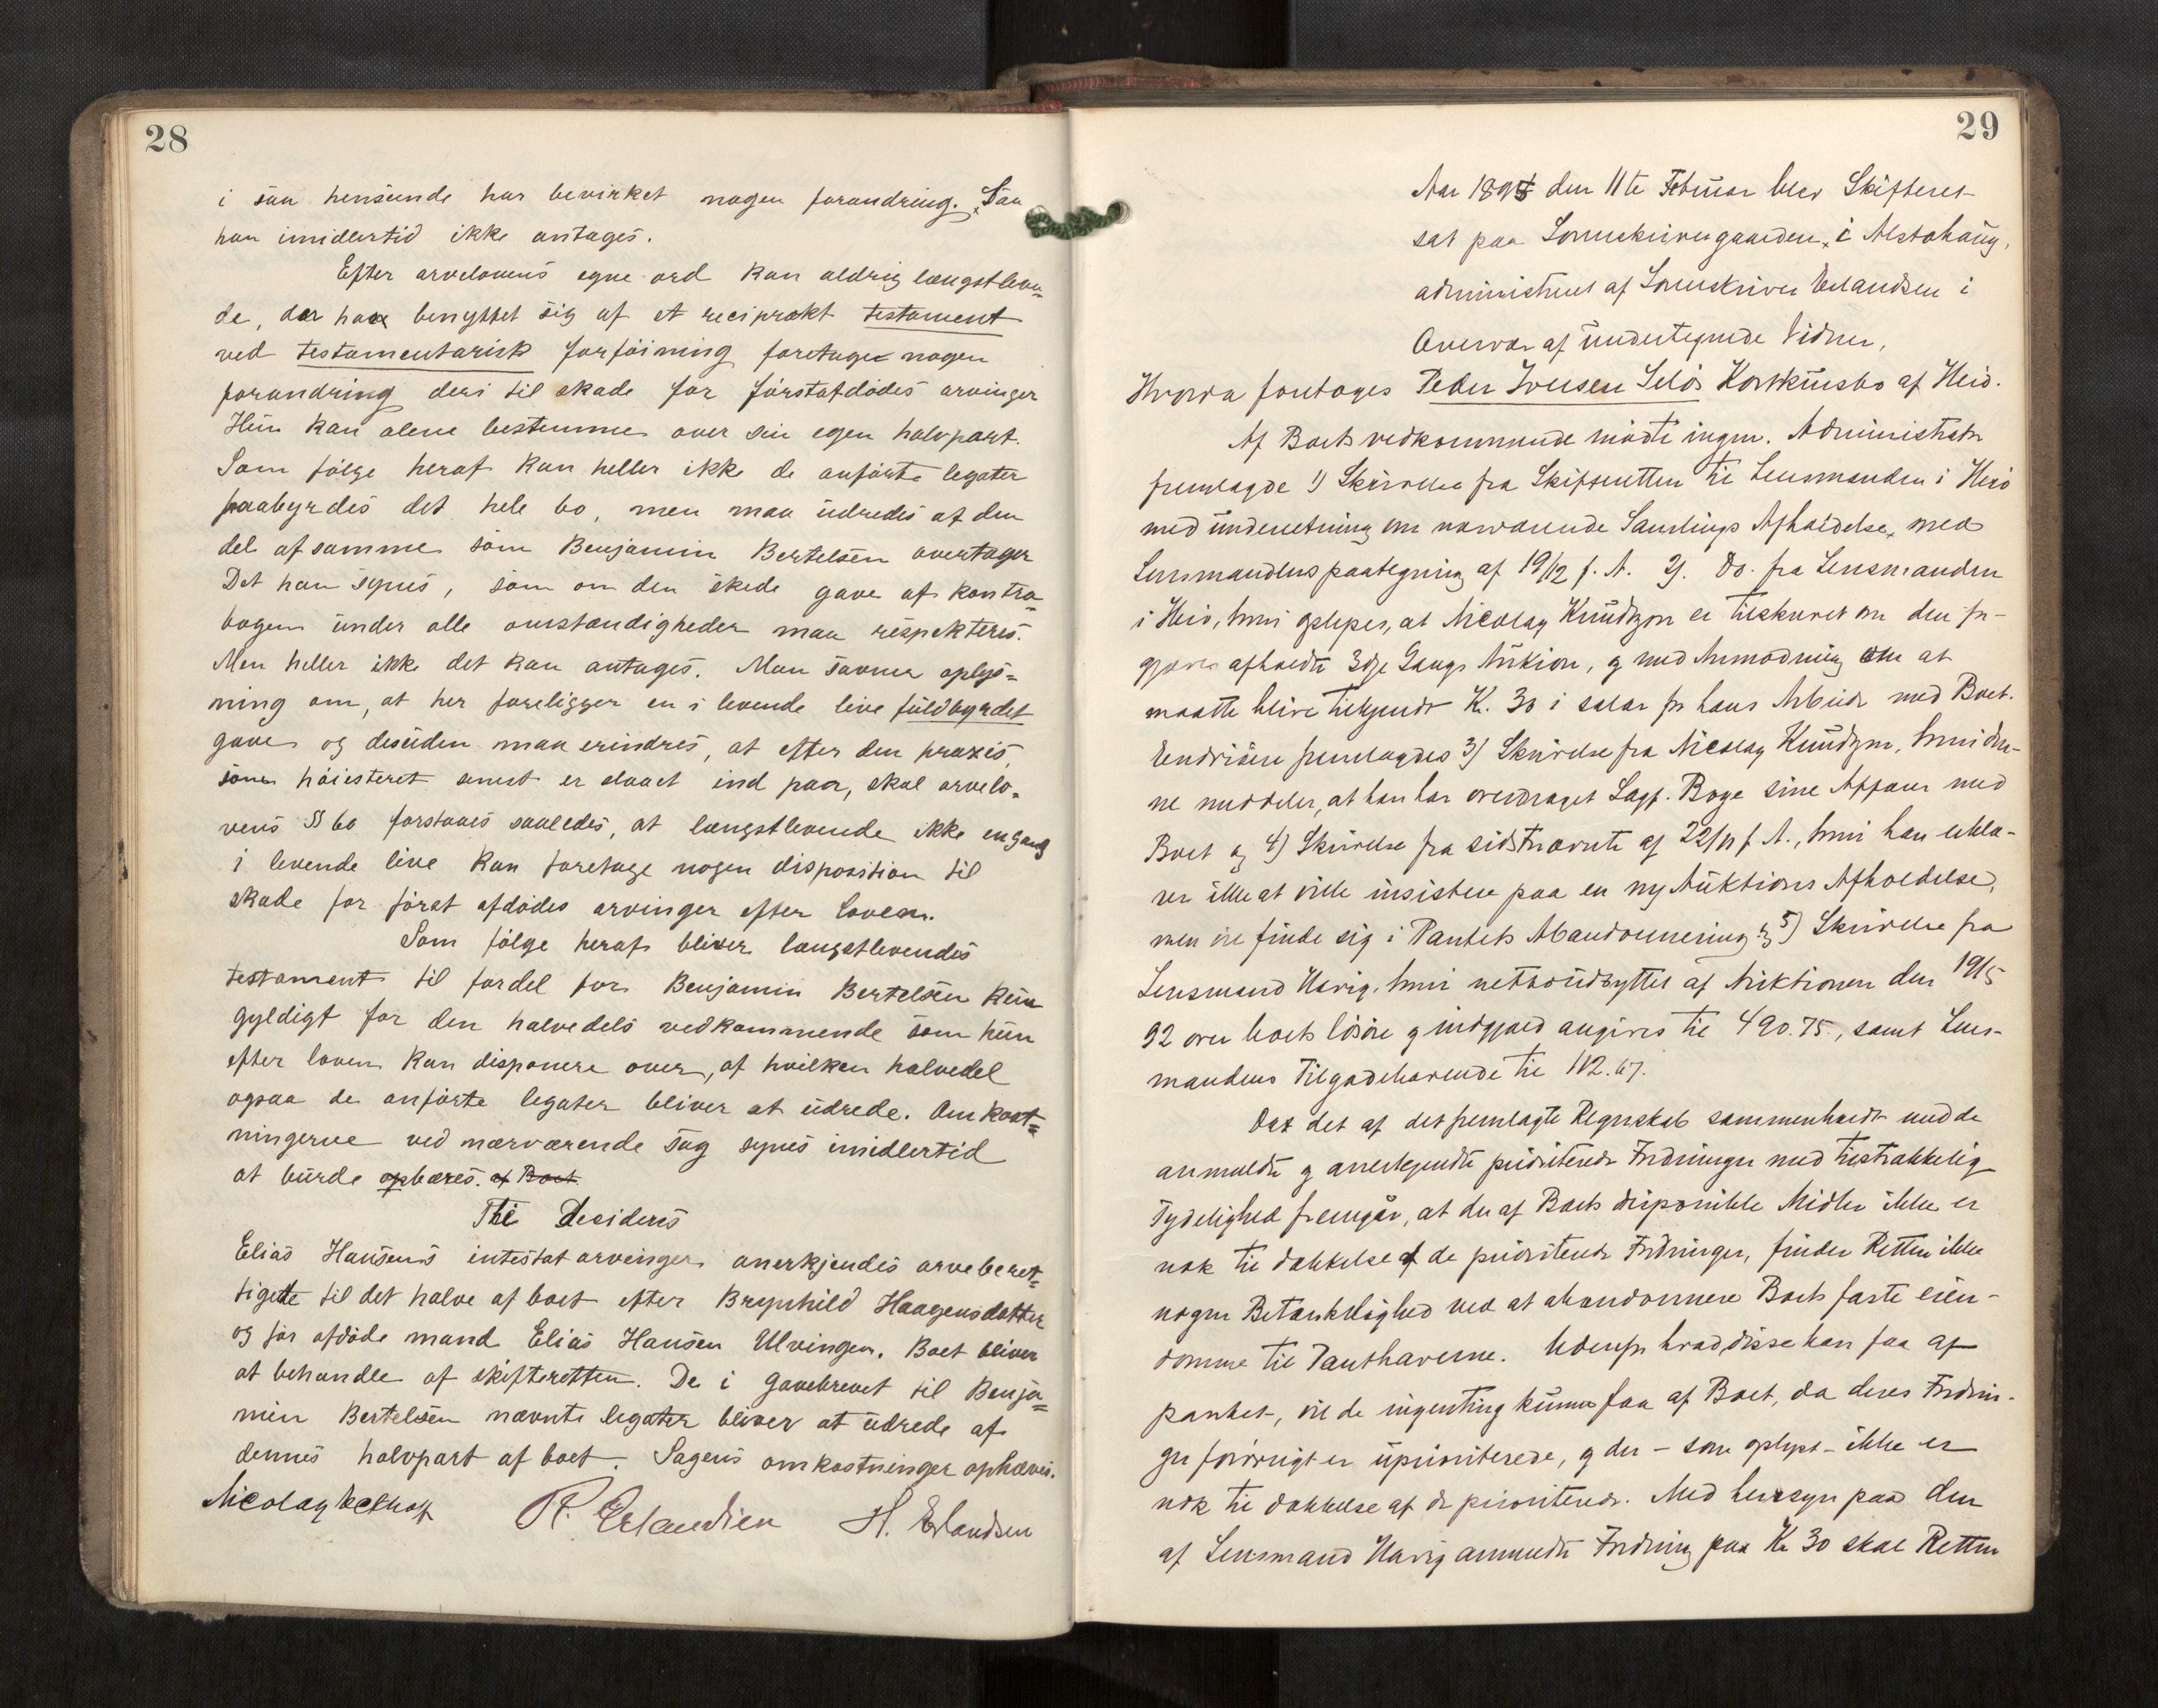 28
i saa henseende har bevirket nogen forandring. Saa
kan imidlertid ikke antages.
Efter arvelovens egne ord kan aldrig længstleven=
de, der have benyttet sig af et reciprokt testament
ved testamentarisk forføining foretage nogen
forandring deri til skade for førstafdødes arvinger
Hun kan alene bestemme over sin egen halvpart.
Som følge heraf kan heller ikke de anførte legater
paabyrdes det hele bo, men maa udredes af den
del af samme som Benjamin Bertelsen overtager
Det kan synes, som om den skede gave af kontra=
bogen under alle omstændigheder maa respekteres.
Men heller ikke det kan antages. Man savner oplys=
ning om, at her foreligger en i levende live fuldbyrdet
gave og desuden maa erindres, at efter den praxis,
som høiesteret senest er slaaet ind paa, skal arvelo=
vens § 60 forstaaes saaledes, at længstlevende ikke engang
i levende live kan foretage nogen disposition til
skade for først afdødes arvinger efter loven.
Som følge heraf bliver længstlevendes
testament til fordel for Benjamin Bertelsen kun
gyldigt for den halvedels vedkommende som hun
efter loven kan disponere over, af hvilken halvedel
ogsaa de anførte legater bliver at udrede. Omkost=
ningerne ved nærværende sag synes imidlertid
at burde opbæres. af Boet.
Thi Decideres
Elias Hansens intestatarvinger anerkjendes arveberet=
tigede til det halve af boet efter Brynhild Haagensdatter
og før afdøde mand Elias Hansen Ulvingen. Boet bliver
at behandle af skifteretten. De i Gavebrevet til Benja=
min Bertelsen nævnte legater bliver at udrede af
dennes halvpart af boet. Sagens omkostninger ophæves.
Nicolay R. Erlandsen H. Erlandsen
29
Aar 1894 den 11te Februar blev Skifteret
sat paa Sorenskrivergaarden i Alstahaug,
administreret af Sorenskriver Erlandsen i
Overvær af undertegnede Vidner,
Hvorda foretoges Peder Iversen Seløs Konkursbo af Herø.
Af Boets vedkommende mødte ingen. Administrator
fremlagde 1) Skrivelse fra Skifteretten til Lensmanden i Herø
med underretning om nærværende Samlings Afholdelse, med
Lensmandens paategning af 19/12 f. A. 2). Do. fra Lensmanden
i Herø, hvori oplyses, at Nicolay Knudtzon er tilskrevet om den for-
gjæves afholdte 3dje Gangs Auktion, og med Anmodning om at
maatte blive tilkjendt K. 30 i salær for hans Arbeide med Boet.
Endvidere fremlagdes 3) Skrivelse fra Nicolay Knudtzon, hvori den-
ne meddeler, at han har overdraget Sagf. Boye sine Affærer med
Boet og 4) Skrivelse fra sidstnævnte af 22/11 f. A., hvori han erklæ-
rer ikke at ville insistere paa en ny Auktions Afholdelse,
men vil finde sig i Pantets Abandonnering og 5) Skrivelse fra
Lensmand Havig, hvori nettoudbyttet af Auktionen den 19/5
92 over boets løsøre og indgjæld angives til 490.75., samt Lens-
mandens Tilgodehavende til 112.67.
Da det af det fremlagte Regnskab sammenholdt med de
anmeldte og anerkjendte prioriterede Fordringer med tilstrækkelig
Tydelighed fremgår, at der af Boets disponible Midler ikke er
nok til dækkelse af de prioriterede Fordringer, finder Retten ikke
nogen Betænkelighed ved at abandonnere Boets faste eien-
domme til Panthaverne. Udenfor hvad disse kan faa af
pantet, vil de ingenting kunne faa af Boet, da deres Fordrin-
ger forøvrigt er uprioriterede, og der - som oplyst - ikke er
nok til dækkelse af de prioriterede. Med hensyn paa den
af Lensmand Havig anmeldte Fordring paa Kr 30 skal Retten